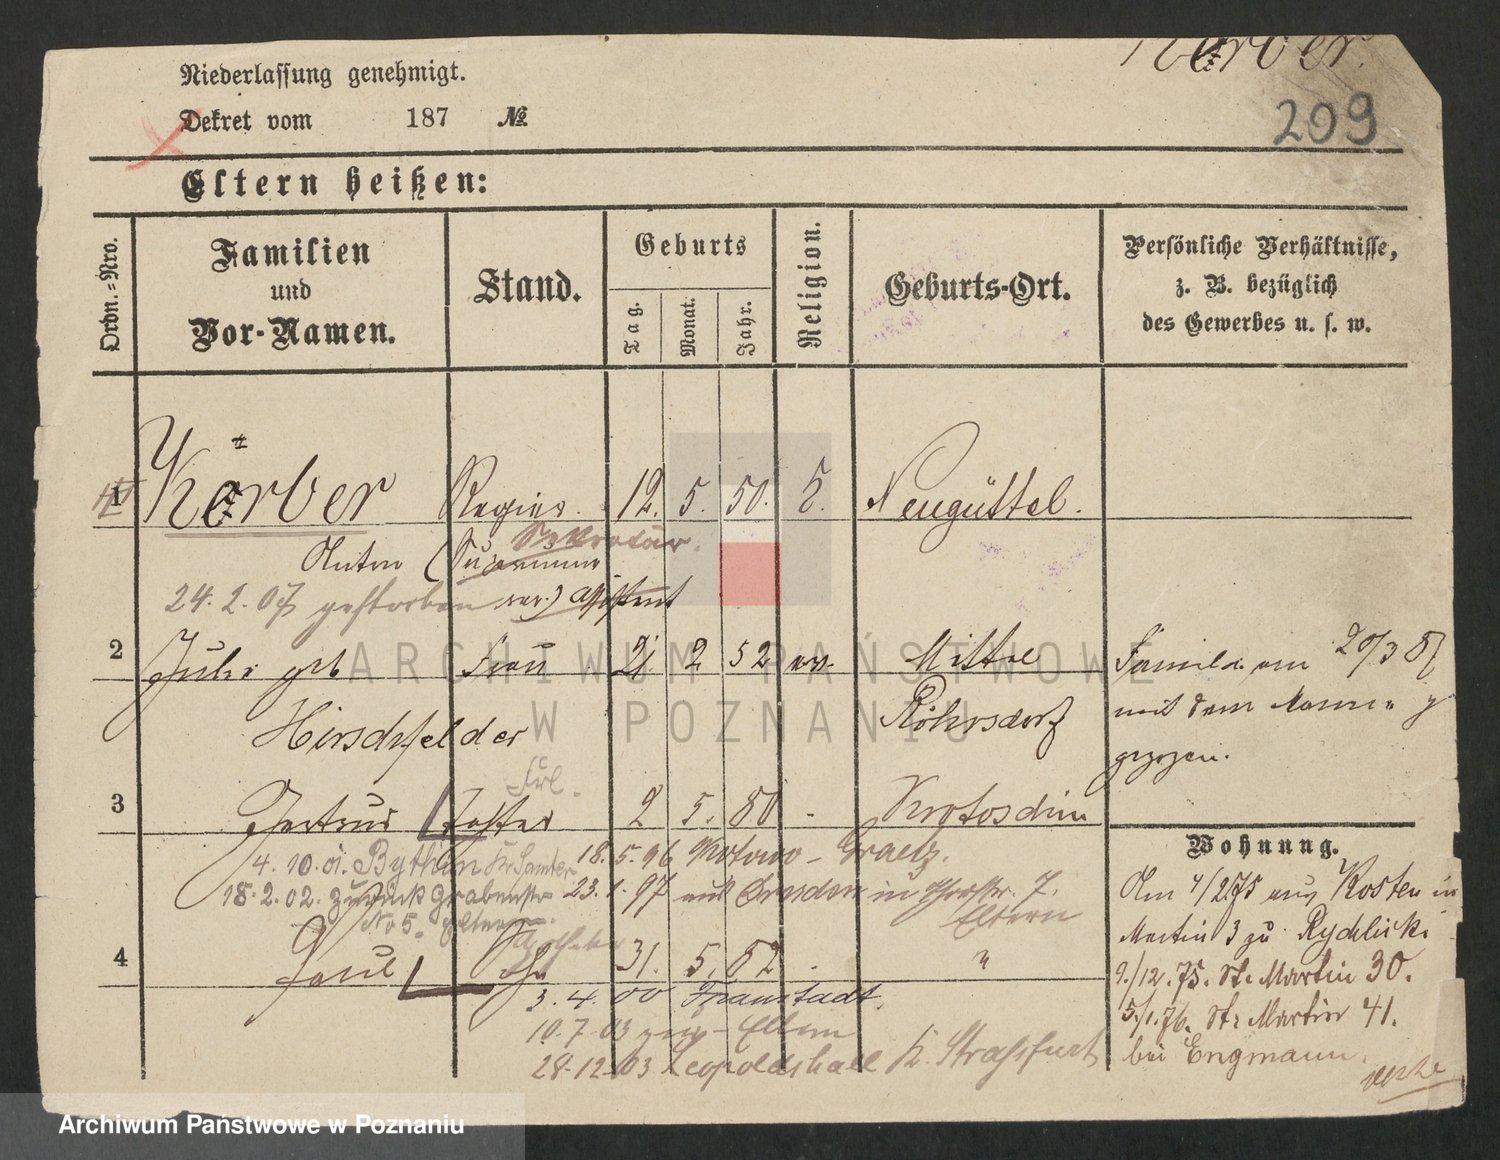 Körber.
Niederlassung genehmigt.
Dekret vom 187 №
209
Eltern heißen:
Ordn.=Nro.
Familien
und
Vor-Namen.
Stand.
Geburts
Tag.
Monat.
Jahr.
Religion.
Geburts-Ort.
Persönliche Verhältnisse,
z. B. bezüglich
des Gewerbes u. s. w.
1 Körber Regier. 12. 5. 50. Neugüttel.
Sekretär.
Anton
24. 2. 07 gestorben Assistent
2 geb Frau 21 2 52 ev. Mittel
Röhrsdorf
Hirschfelder
Familie am 20/3 87
mit dem Manne
gezogen.
Frl.
3 Gertrud Tochter 2 5. 80 Krotoschin
4. 10. 01. Bythin Kr Samter 18. 5. 96 Kotowo - Graetz.
18. 2. 02. zurück Grabenstr 23. 1. 97 aus Dresden in 7.
No 5. Eltern Eltern
4 Paul 31. 5. 82 "
3. 4. 00 Fraustadt.
10. 7. 03 Eltern
28. 12. 03 Leopoldshall b. Strassfurt
Wohnung.
Am 4/2 75 aus Kosten in
Martin 3 zu Rychlicki
9./12. 75. St. Martin 30.
5/1. 76. St. Martin 41.
bei Engmann.
ARCHIWUM PAŃSTWOWE
W POZNANIU
Archiwum Państwowe w Poznaniu